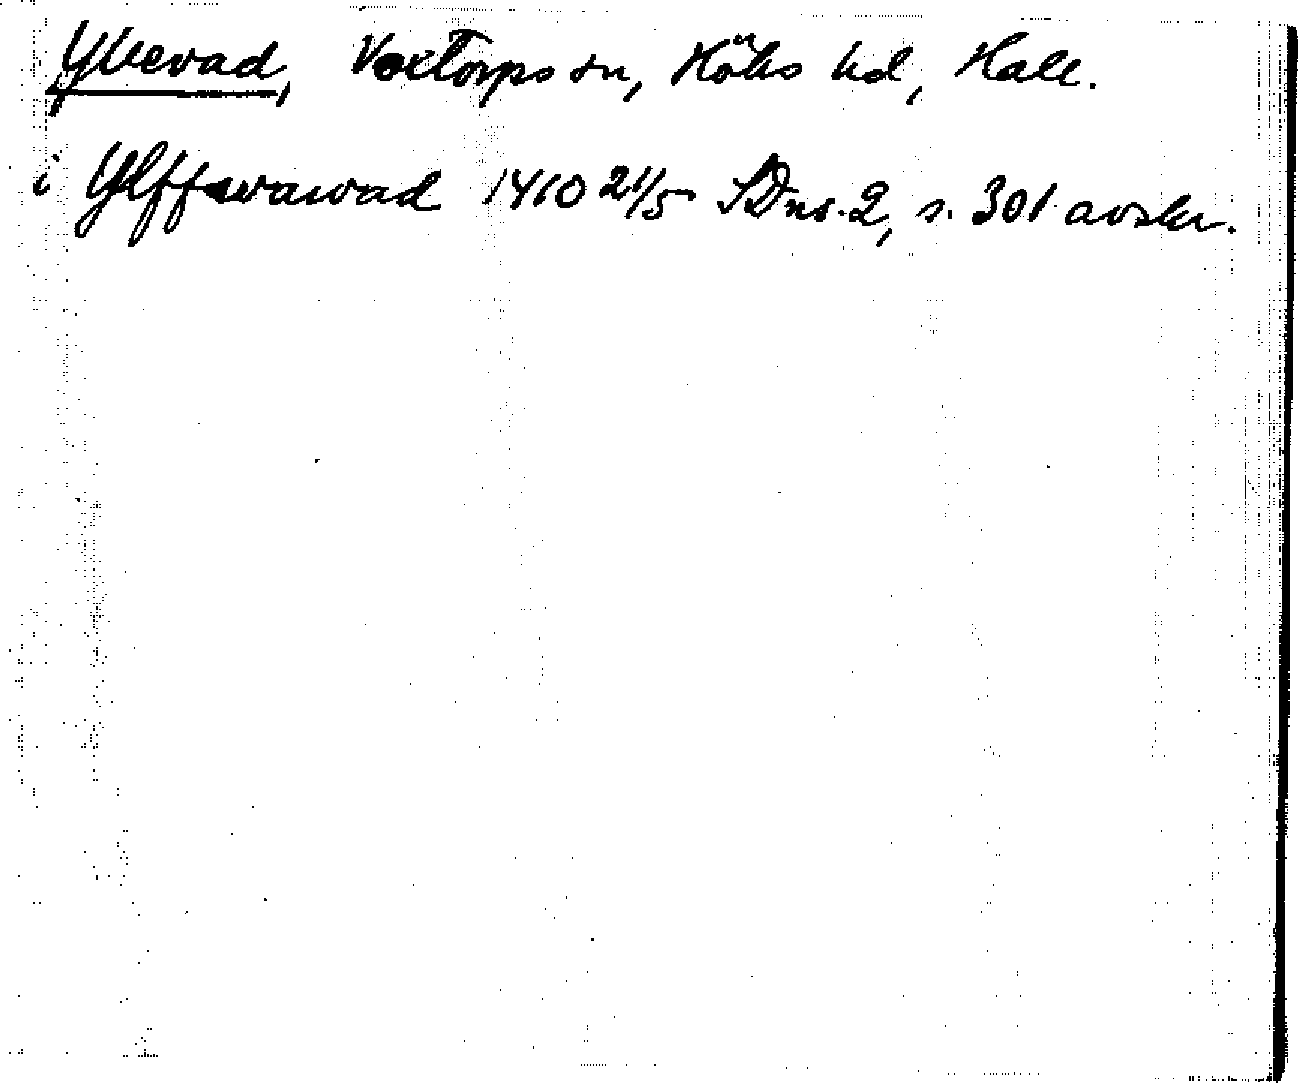 Ylvevad, Voxtorps sn, Höks hd, Hall.
i Ylffwawad 1410 21/5 SDns. 2, s. 301 avskr.